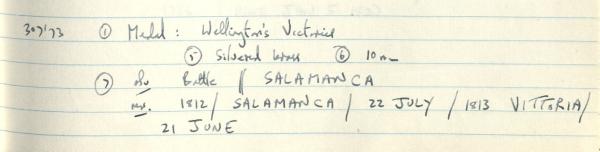 307'73 ① Medal: Wellington's Victories
⑤ Silvered brass ⑥ 10 m
⑦ obv Battle // SALAMANCA
rev. 1812 / SALAMANCA / 22 JULY / 1813 VITTORIA /
21 JUNE